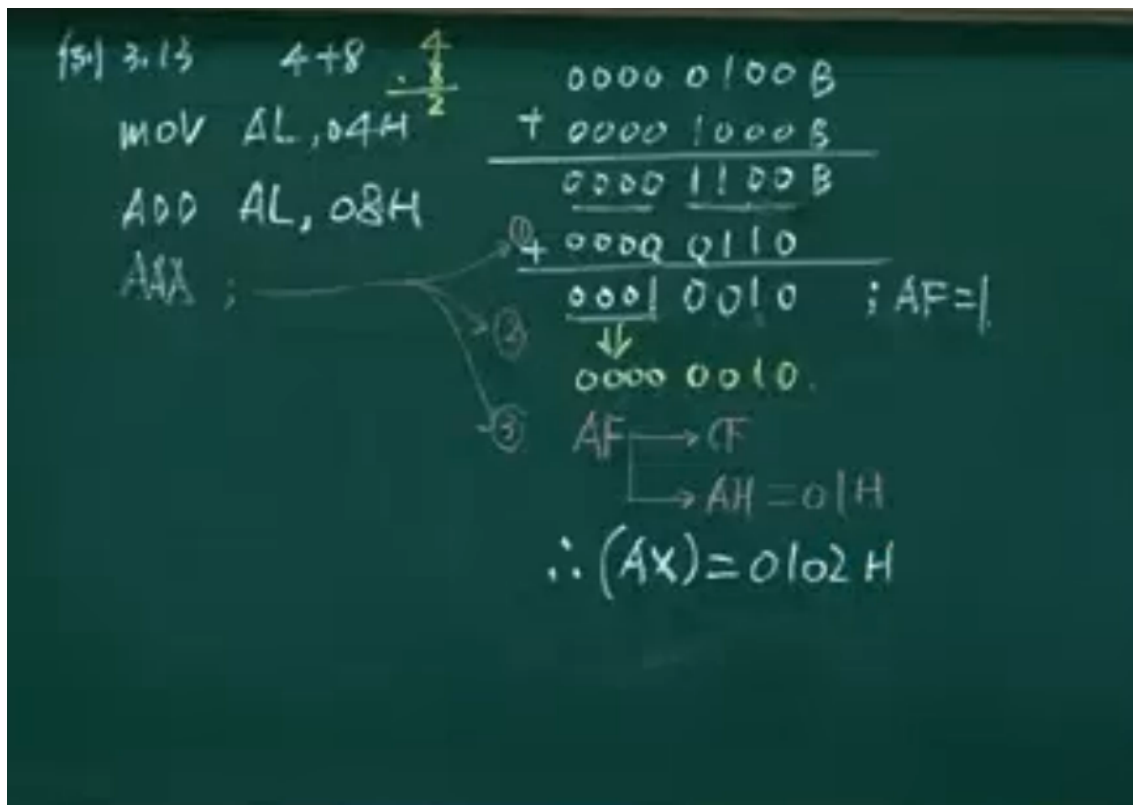 例 3.13 4+8
4
. 8
2
MOV AL,04H
ADD AL, 08H
AAA ;
0000 0100 B
+ 0000 1000 B
0000 1100 B
① + 0000 0110
0001 0010 ; AF=1
②
⇓
0000 0010.
③ AF → CF
→ AH = 01H
∴ (AX) = 0102 H